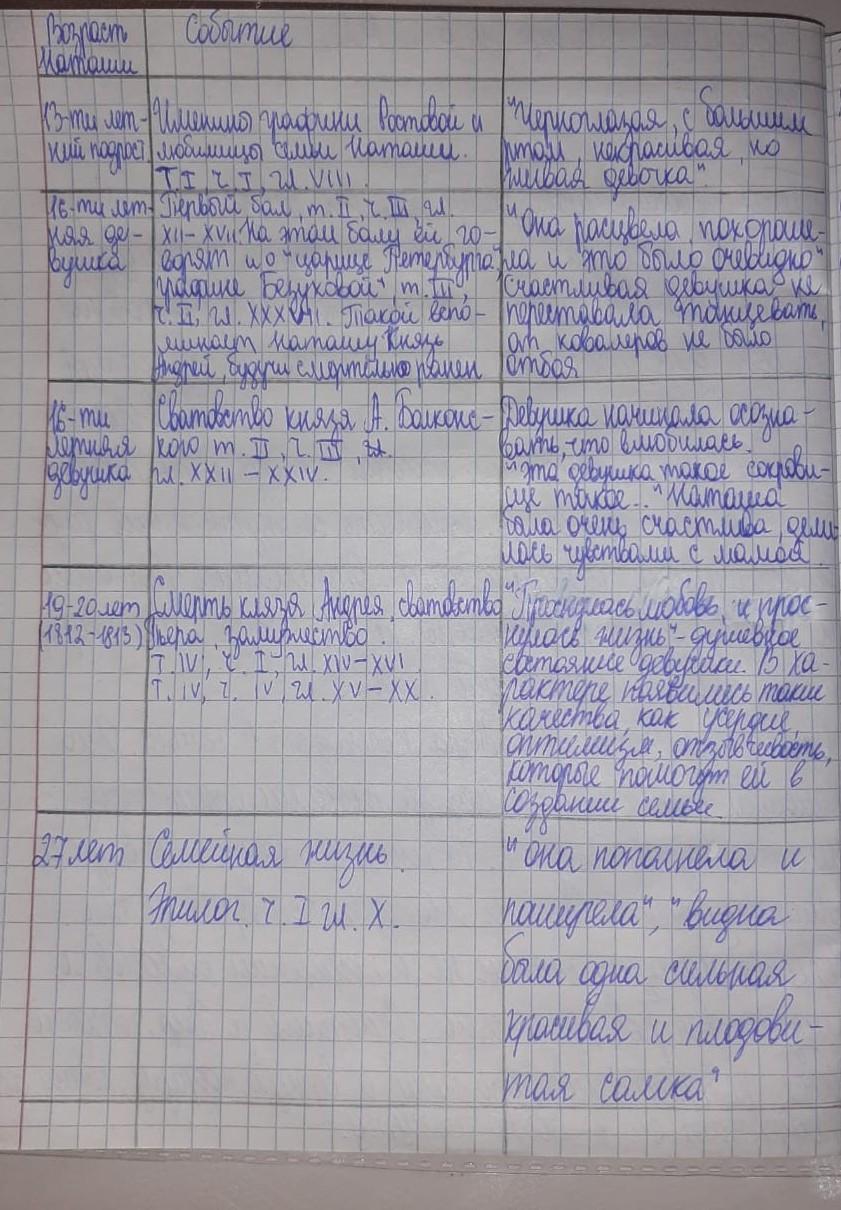 Возраст
Наташи
Событие
13-ти лет-
ний подрост
Именины графини Ростовой и
любимицы семьи Наташи.
Т. I, ч. I, гл. VIII.
"Черноглазая, с большим
ртом, некрасивая, но
живая девочка".
16-ти лет-
няя де-
вушка
Первый бал, т. II, ч. III, гл.
XII-XVII. На этом балу ей го-
ворят и о "царице Петербурга,
графине Безуховой" т. III,
ч. II, гл. XXXVII. Такой вспо-
минает Наташу Князь
Андрей, будучи смертельно ранен
"Она расцвела, похороше-
ла и это было очевидно"
счастливая девушка не
переставала танцевать,
от ковалеров не было
отбоя
16-ти
летняя
девушка
Сватовство князя А. Болконс-
кого т. II, ч. III, гл.
гл. XXII - XXIV.
Девушка начинала осозна-
вать, что влюбилась.
"эта девушка такое сокрови-
ще такое..." Наташа
была очень счастлива, дели-
лась чувствами с мамой.
19-20 лет
(1812-1813)
Смерть князя Андрея, сватовство
Пьера, замужество.
Т. IV, ч. I, гл. XIV-XVI
Т. IV, ч. IV, гл. XV-XX.
"Проснулась любовь, и прос-
нулась жизнь"-душевное
состояние девушки. В ха-
рактере появились такие
качества, как усердие,
оптимизм, отзывчивость,
которые помогут ей в
создании семьи.
27 лет
Семейная жизнь.
Эпилог. ч. I гл. X.
"она пополнела и
поширела", "видна
была одна сильная
красивая и плодови-
тая самка"